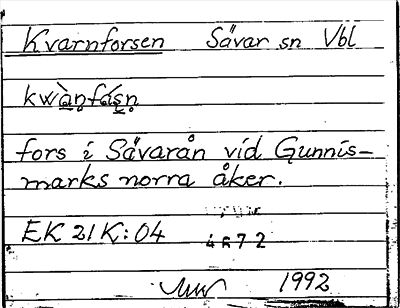 Kvarnforsen Sävar sn Vbl
kwàṇfáṣṇ
fors i Sävarån vid Gunnis-
marks norra åker.
EK 21K:04
4672
1992